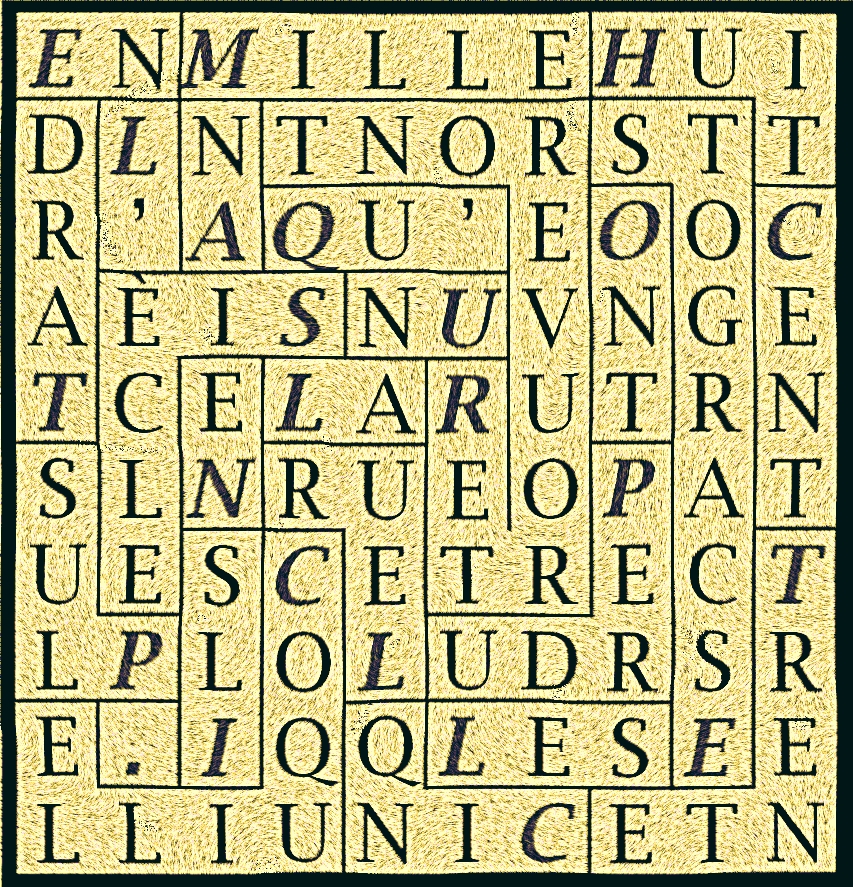 ENMILLEHUI
DLNTNORSTT
R'AQU'EOOC
AÈISNUVNGE
TCELARUTRN
SLNRUEOPAT
UESCETRECT
LPLOLUDRSR
E.IQQLESEE
LLIUNICETN